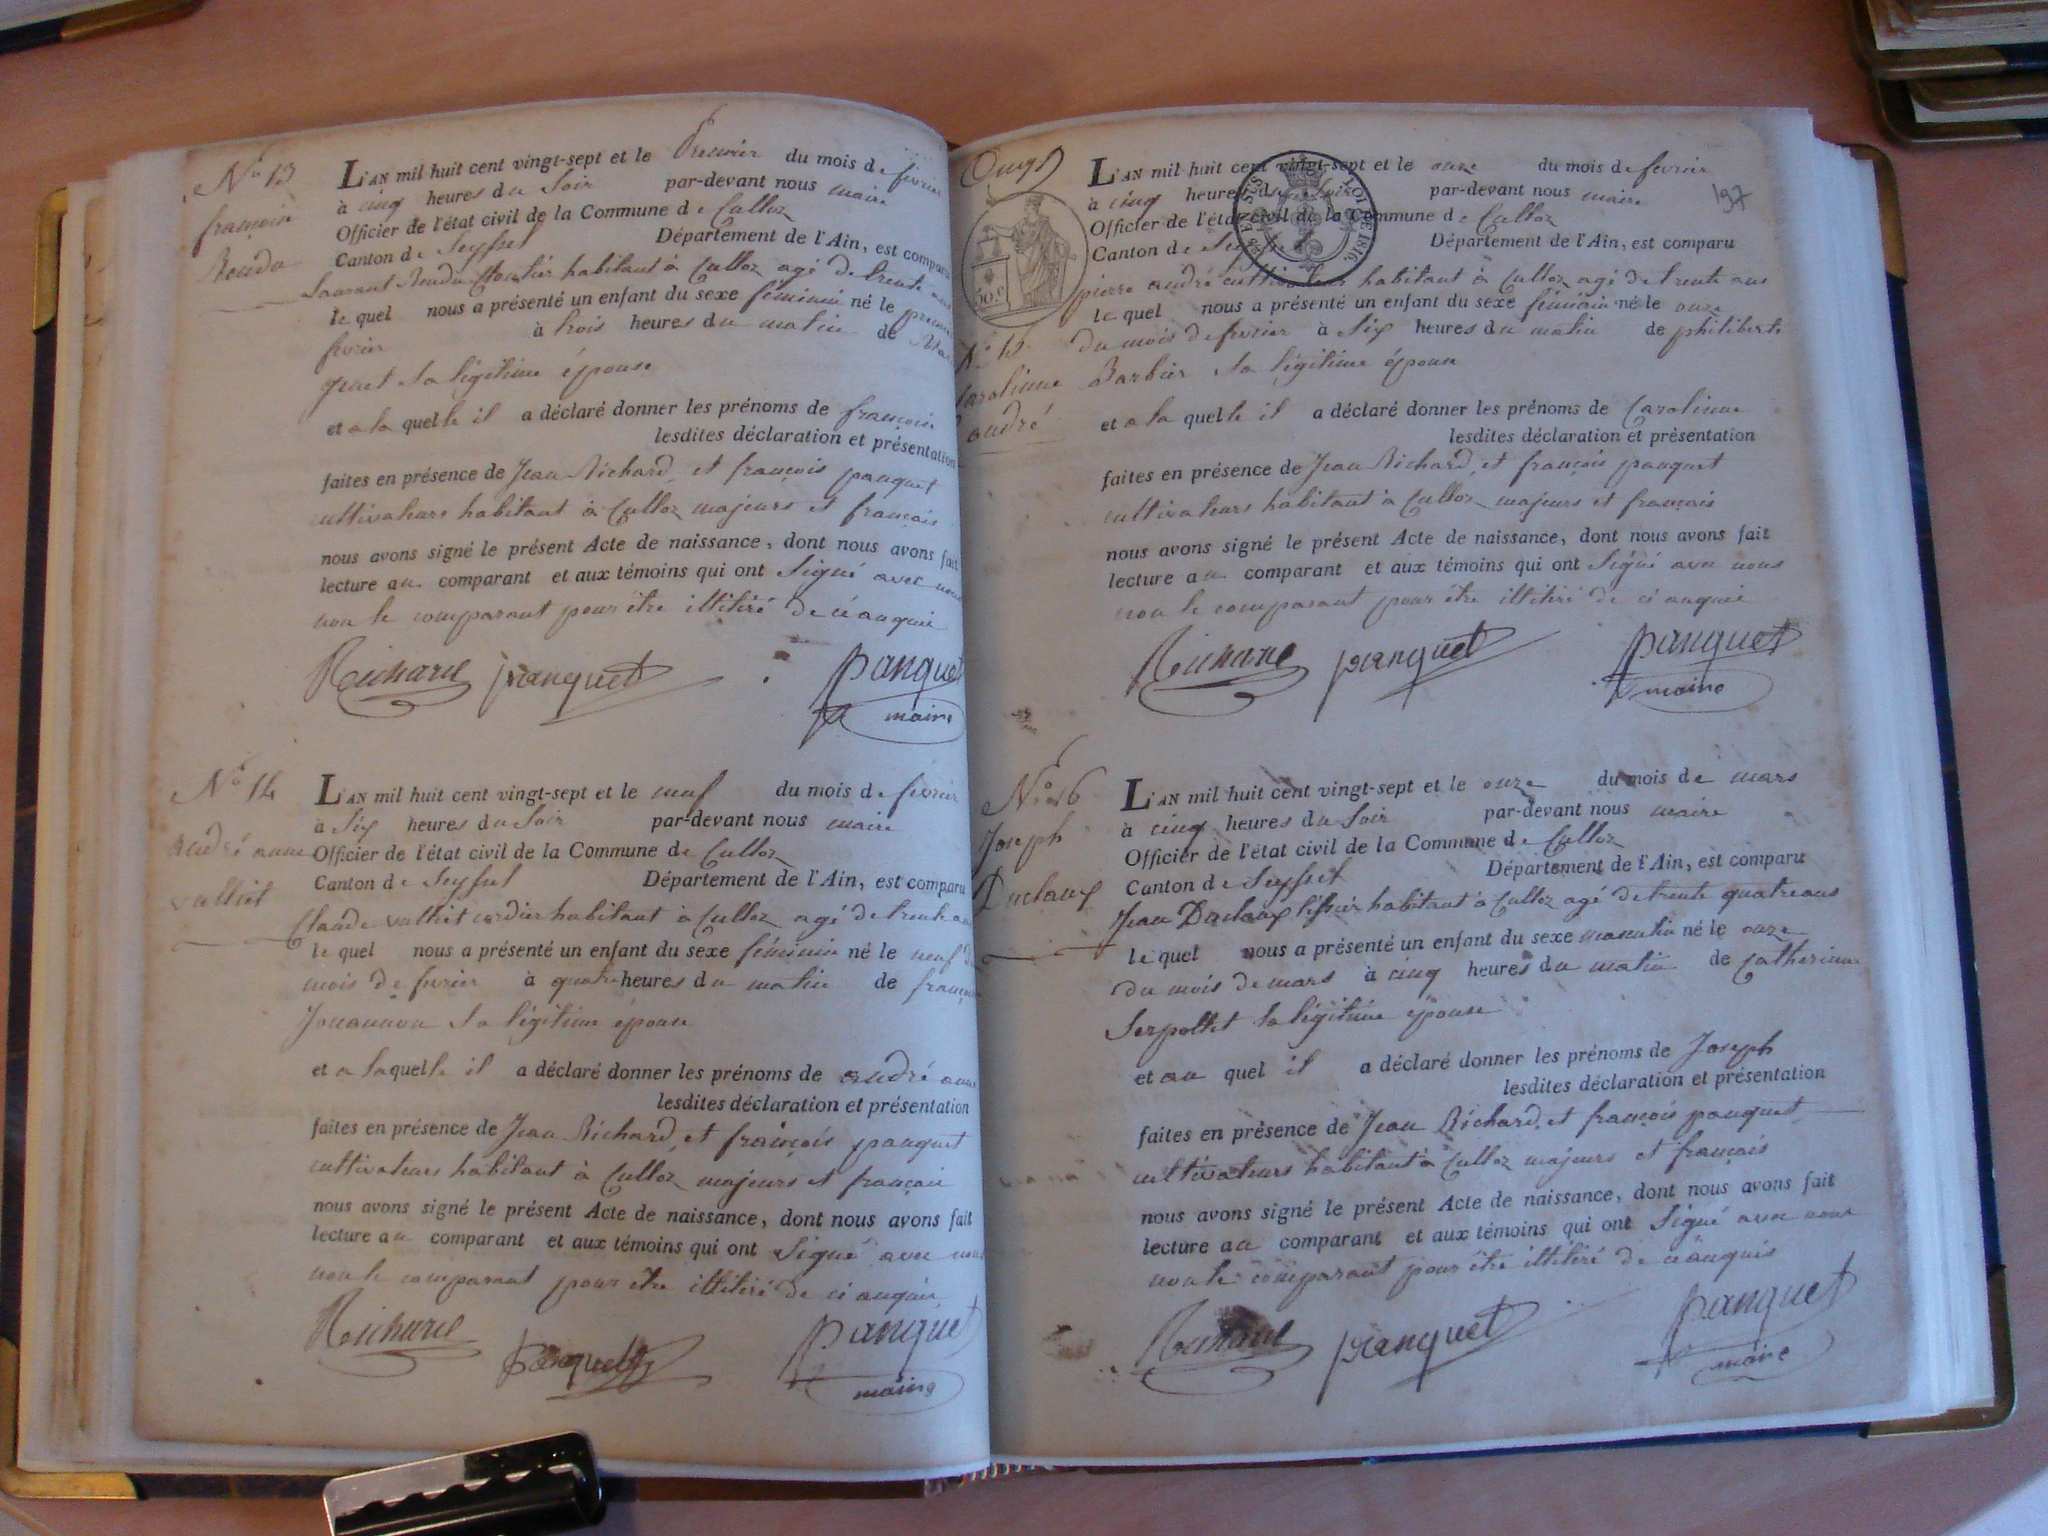 N.o 13
françoise
Rendu
L'AN mil huit cent vingt-sept et le Premier du mois de fevrier
à cinq heures du Soir par-devant nous maire
Officier de l'état civil de la Commune de Culloz
Canton de Seyssel Département de l'Ain, est comparu
Laurent Rendu habitant à Culloz agé de trente ans
le quel nous a présenté un enfant du sexe féminin né le premier
fevrier à trois heures du matin de
sa légitime épouse
et a la quelle il a déclaré donner les prénoms de françoise
lesdites déclaration et présentation
faites en présence de Jean Richard, et françois panquet
cultivateurs habitant à Culloz majeurs et français
nous avons signé le présent Acte de naissance, dont nous avons fait
lecture au comparant et aux témoins qui ont Signé avec nous
non le comparant pour être illitiré de ce anquie
Richard panquet panquet
maire
N.o 14
André anne
vulliet
L'AN mil huit cent vingt-sept et le neuf du mois de fevrier
à Six heures du Soir par-devant nous maire
Officier de l'état civil de la Commune de Culloz
Canton de Seyssel Département de l'Ain, est comparu
Claude vulliet cordier habitant à Culloz agé de trente ans
le quel nous a présenté un enfant du sexe féminin né le neuf du
mois de fevrier à quatre heures du matin de françoise
Jouannon Sa légitime épouse
et a laquelle il a déclaré donner les prénoms de andré anne
lesdites déclaration et présentation
faites en présence de Jean Richard, et françois panquet
cultivateurs habitant à Culloz majeurs et français
nous avons signé le présent Acte de naissance, dont nous avons fait
lecture au comparant et aux témoins qui ont Signé avec nous
non le comparant pour être illitiré de ce anquie
Richard panquet panquet
maire
197
50.c
LOI DE 1816.
N.o 15
Carolinne
andré
L'AN mil huit cent vingt-sept et le onze du mois de fevrier
à cinq heures du Soir par-devant nous maire
Officier de l'état civil de la Commune de Culloz
Canton de Seyssel Département de l'Ain, est comparu
pierre andré cultivateur habitant à Culloz agé de trente ans
le quel nous a présenté un enfant du sexe féminin né le onze
du mois de fevrier à Six heures du matin de philiberte
Barbier Sa légitime épouse
et a la quelle il a déclaré donner les prénoms de Carolinne
lesdites déclaration et présentation
faites en présence de Jean Richard, et françois panquet
cultivateurs habitant à Culloz majeurs et français
nous avons signé le présent Acte de naissance, dont nous avons fait
lecture au comparant et aux témoins qui ont Signé avec nous
non le comparant pour être illitiré de ce anquie
Richard panquet panquet
maire
N.o 16
Joseph
Duclaux
L'AN mil huit cent vingt-sept et le onze du mois de mars
à cinq heures du Soir par-devant nous maire
Officier de l'état civil de la Commune de Culloz
Canton de Seyssel Département de l'Ain, est comparu
Jean Duclaux habitant à Culloz agé de trente quatre ans
le quel nous a présenté un enfant du sexe masculin né le onze
du mois de mars à cinq heures du matin de Catherinne
Serpollet Sa légitime épouse
et au quel il a déclaré donner les prénoms de Joseph
lesdites déclaration et présentation
faites en présence de Jean Richard, et françois panquet
cultivateurs habitant à Culloz majeurs et français
nous avons signé le présent Acte de naissance, dont nous avons fait
lecture au comparant et aux témoins qui ont Signé avec nous
non le comparant pour être illitiré de ce anquis
Richard panquet panquet
maire